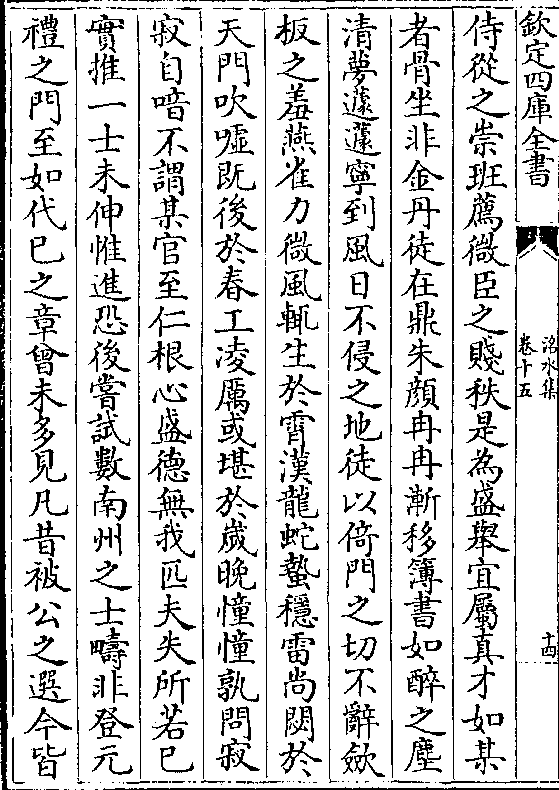 欽定四庫全書
洺水集
卷十五
十四
侍從之崇班薦微臣之賤秩是為盛舉宜屬真才如某
者骨坐非金丹徒在鼎朱顔冉冉漸移簿書如醉之塵
清夢蘧蘧寧到風日不侵之地徒以倚門之切不辭歛
板之羞燕雀力微風輒生於霄漢龍蛇蟄穩雷尚閟於
天門吹噓既後於春工凌厲或堪於嵗晚憧憧孰問寂
寂自喑不謂某官至仁根心盛德無我匹夫失所若己
實推一士未伸惟進恐後嘗試數南州之士疇非登元
禮之門至如代已之章曾未多見凡昔被公之選今皆